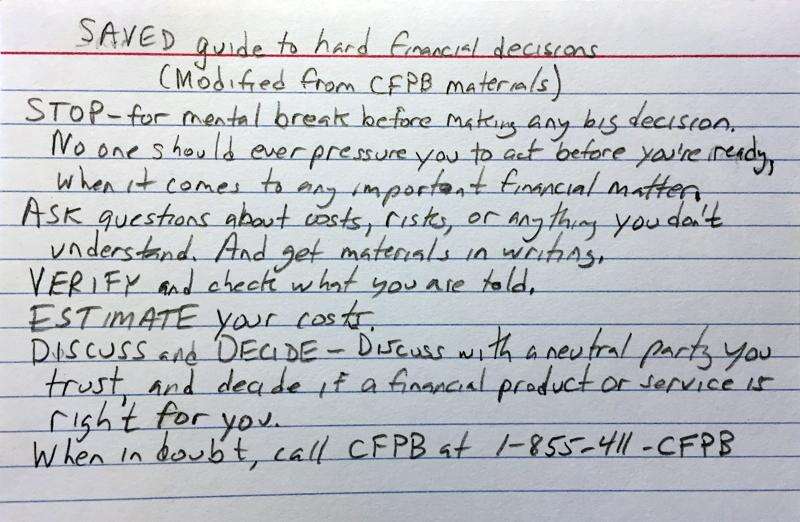 SAVED guide to hard financial decisions
(Modified from CFPB materials)
STOP-for mental break before making any big decision.
No one should ever pressure you to act before you're ready,
when it comes to any important financial matter.
ASK questions about costs, risks, or anything you don't
understand. And get materials in writing.
VERIFY and check what you are told.
ESTIMATE your costs.
DISCUSS and DECIDE - Discuss with a neutral party you
trust, and decide if a financial product or service is
right for you.
When in doubt, call CFPB at 1-855-411-CFPB